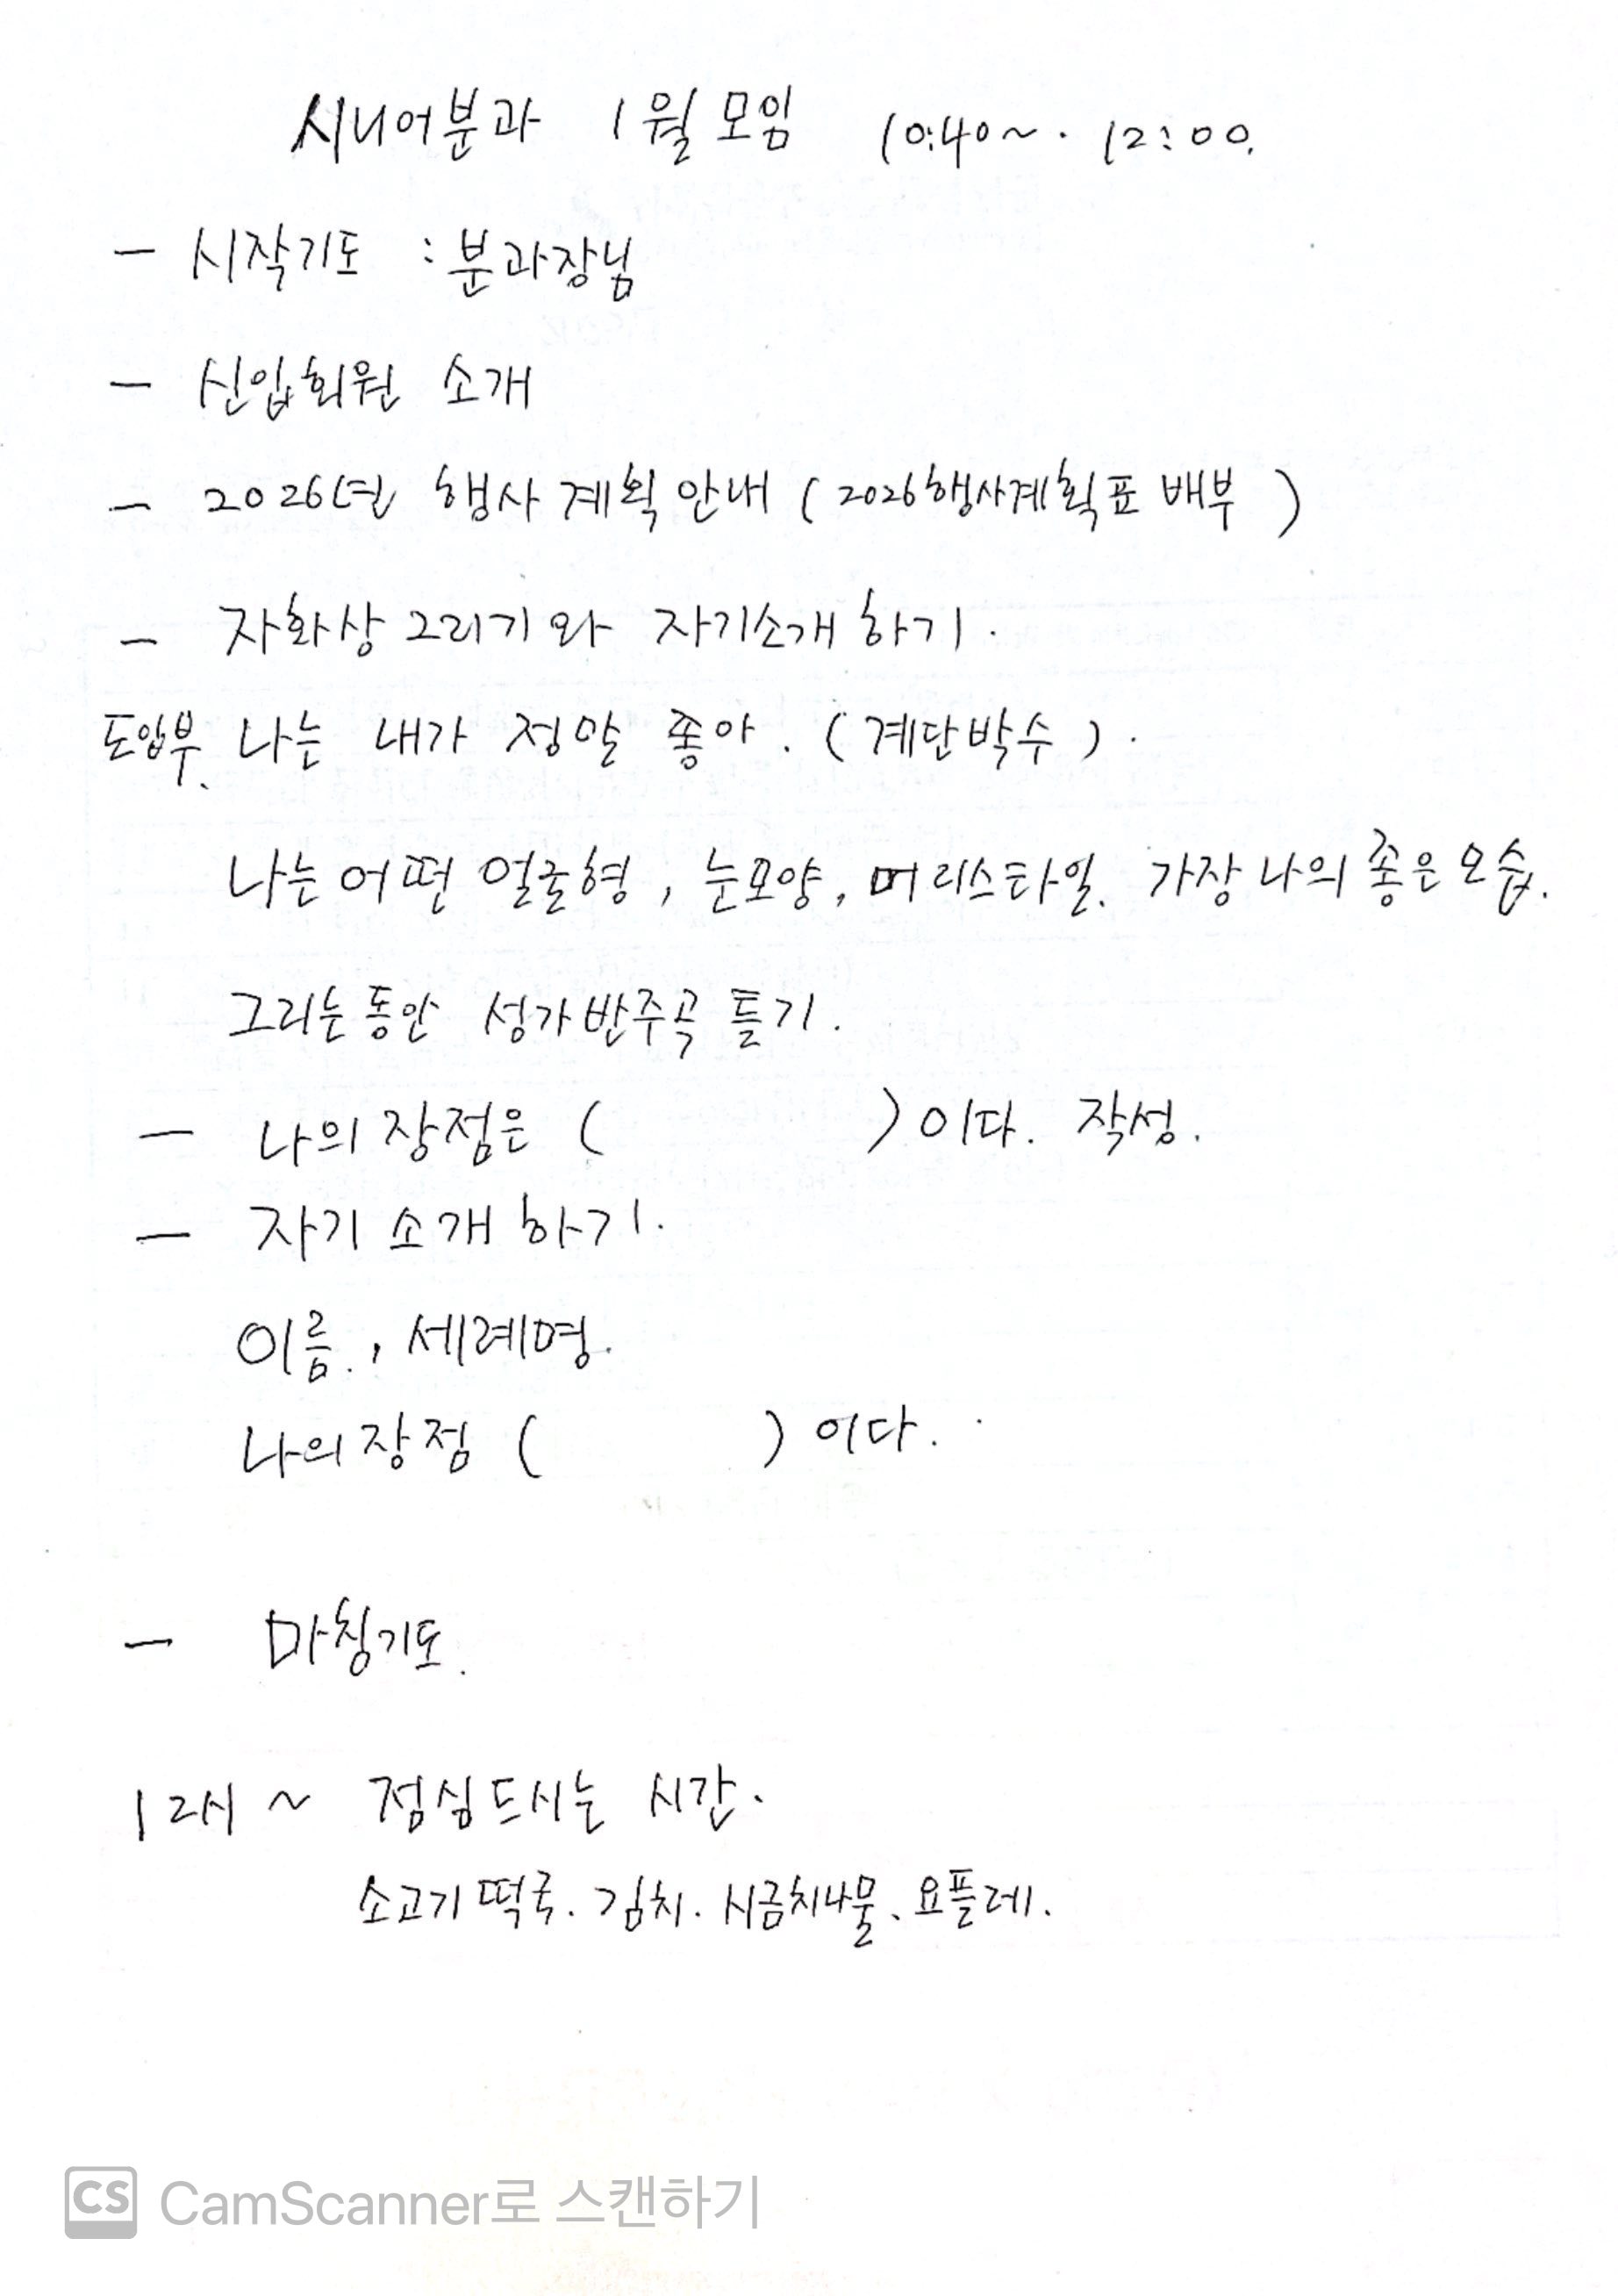 시니어분과 1월 모임 10:40~. 12:00.
- 시작기도 : 분과장님
- 신입회원 소개
- 2026년 행사계획 안내 (2026행사계획표 배부)
- 자화상 그리기와 자기소개 하기.
도입부. 나는 내가 정말 좋아. (계단박수).
나는 어떤 얼굴형, 눈모양, 머리스타일. 가장 나의 좋은모습.
그리는동안 성가반주곡 틀기.
- 나의 장점은 ( )이다. 작성.
- 자기 소개 하기.
이름., 세례명.
나의장점 ( )이다.
- 마침기도.
12시 ~ 점심드시는 시간.
소고기 떡국. 김치. 시금치나물. 요플레.
CS CamScanner로 스캔하기